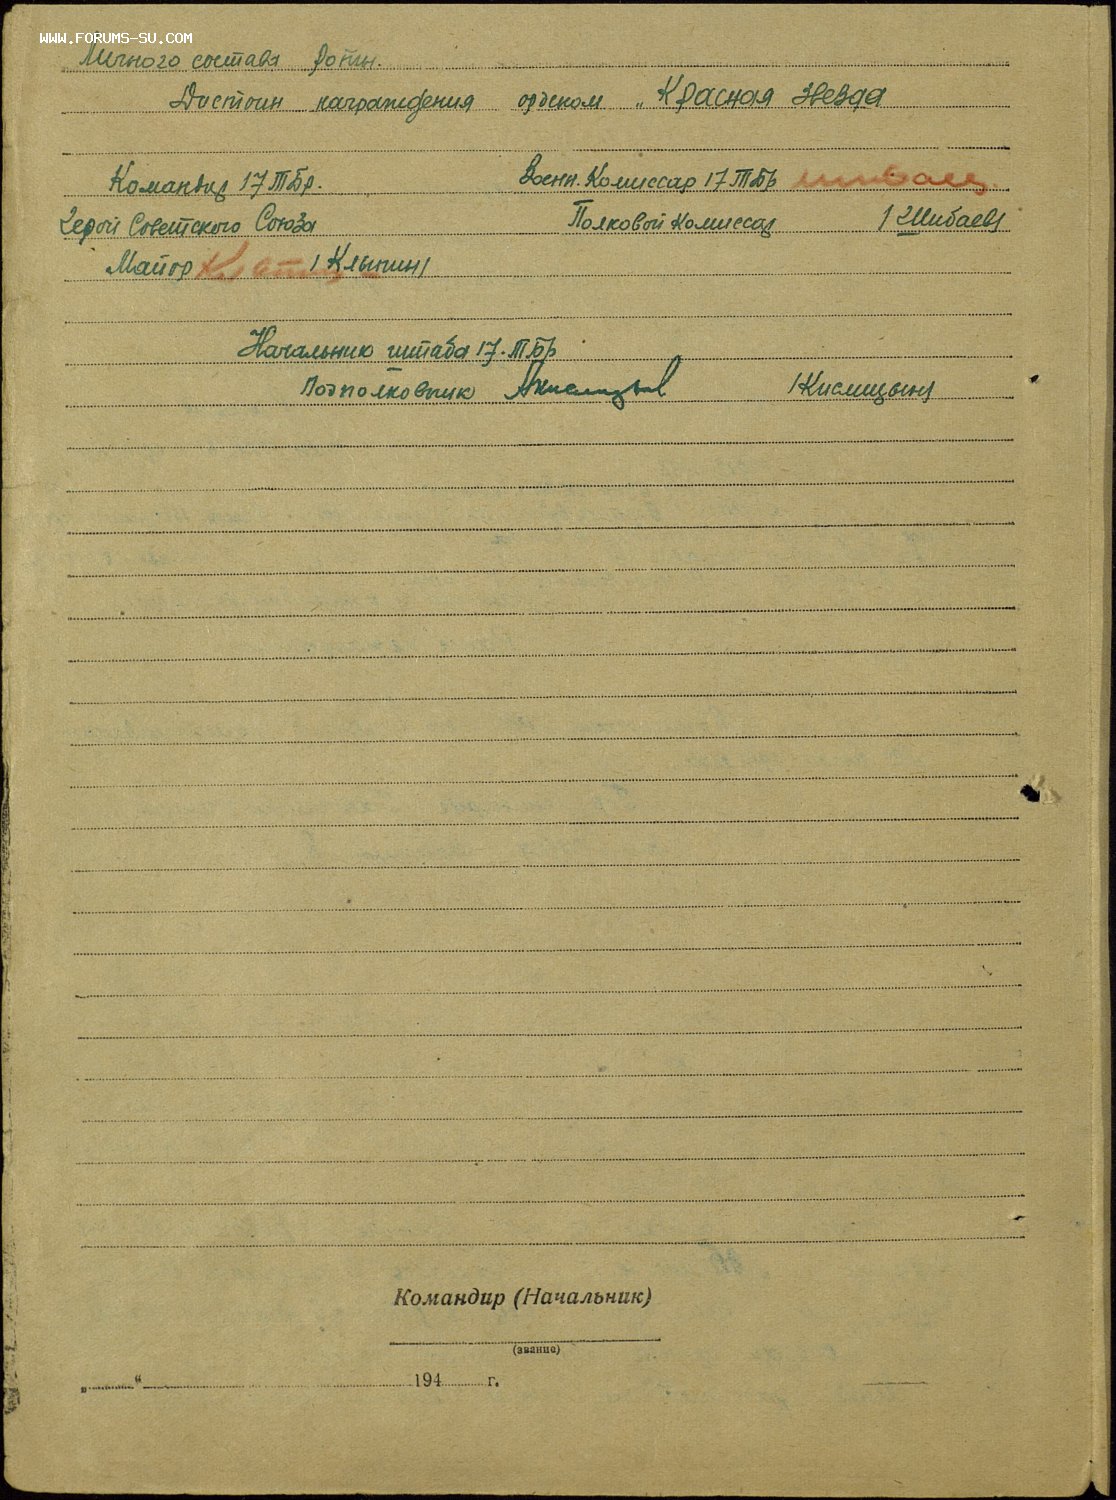 WWW.FORUMS-SU.COM
Личного состава роты.
Достоин награждения орденом „Красная звезда
Командир 17 ТБр.
Герой Советского Союза
Майор /Клыпин/
Военн. Комиссар 17 ТБр Шибаев.
Полковой Комиссар /Шибаев/
Начальник штаба 17. ТБр
Подполковник /Кислицын/
Командир (Начальник)
(звание)
„ “ 194 г.